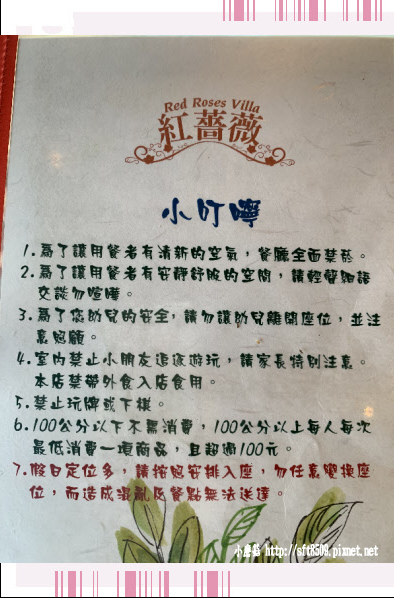 Red Roses Villa
紅薔薇
小叮嚀
1.為了讓用餐者有清新的空氣，餐廳全面禁菸。
2.為了讓用餐者有安靜舒服的空間，請輕聲細語
交談勿喧嘩。
3.為了您幼兒的安全，請勿讓幼兒離開座位，並注
意照顧。
4.室內禁止小朋友追逐遊玩，請家長特別注意。
本店禁帶外食入店食用。
5.禁止玩牌或下棋。
6.100公分以下不需消費，100公分以上每人每次
最低消費一項商品，且超過100元。
7.假日定位多，請按照安排入座，勿任意變換座
位，而造成混亂及餐點無法送達。
小蘑菇 http://sft8509.pixnet.net